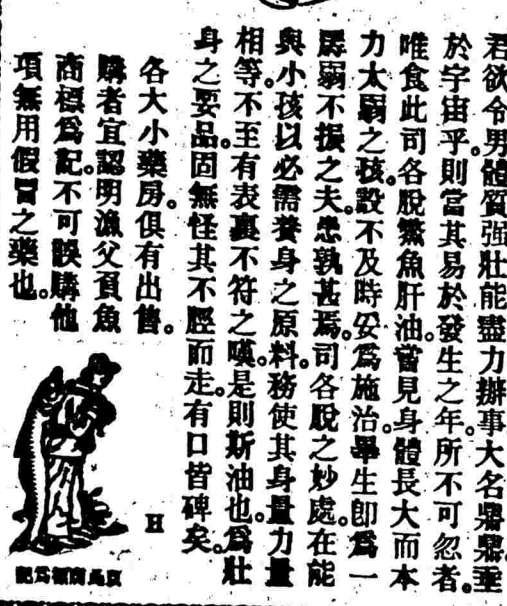 君欲令男體質强壯能盡力辦事大名鼎鼎垂
於宇宙乎。則當其易於發生之年。所不可忽者。
唯食此司各脫鰵魚肝油。嘗見身體長大而本
力太弱之孩。設不及時妥爲施治。畢生卽爲一
孱弱不振之夫。患孰甚焉。司各脫之妙處。在能
與小孩以必需養身之原料。務使其身量力量
相等。不至有表裏不符之嘆。是則斯油也。爲壯
身之要品。固無怪其不脛而走。有口皆碑矣。
各大小藥房。俱有出售。
購者宜認明漁父負魚
商標爲記。不可誤購他
項無用假冒之藥也。
H
商標爲記